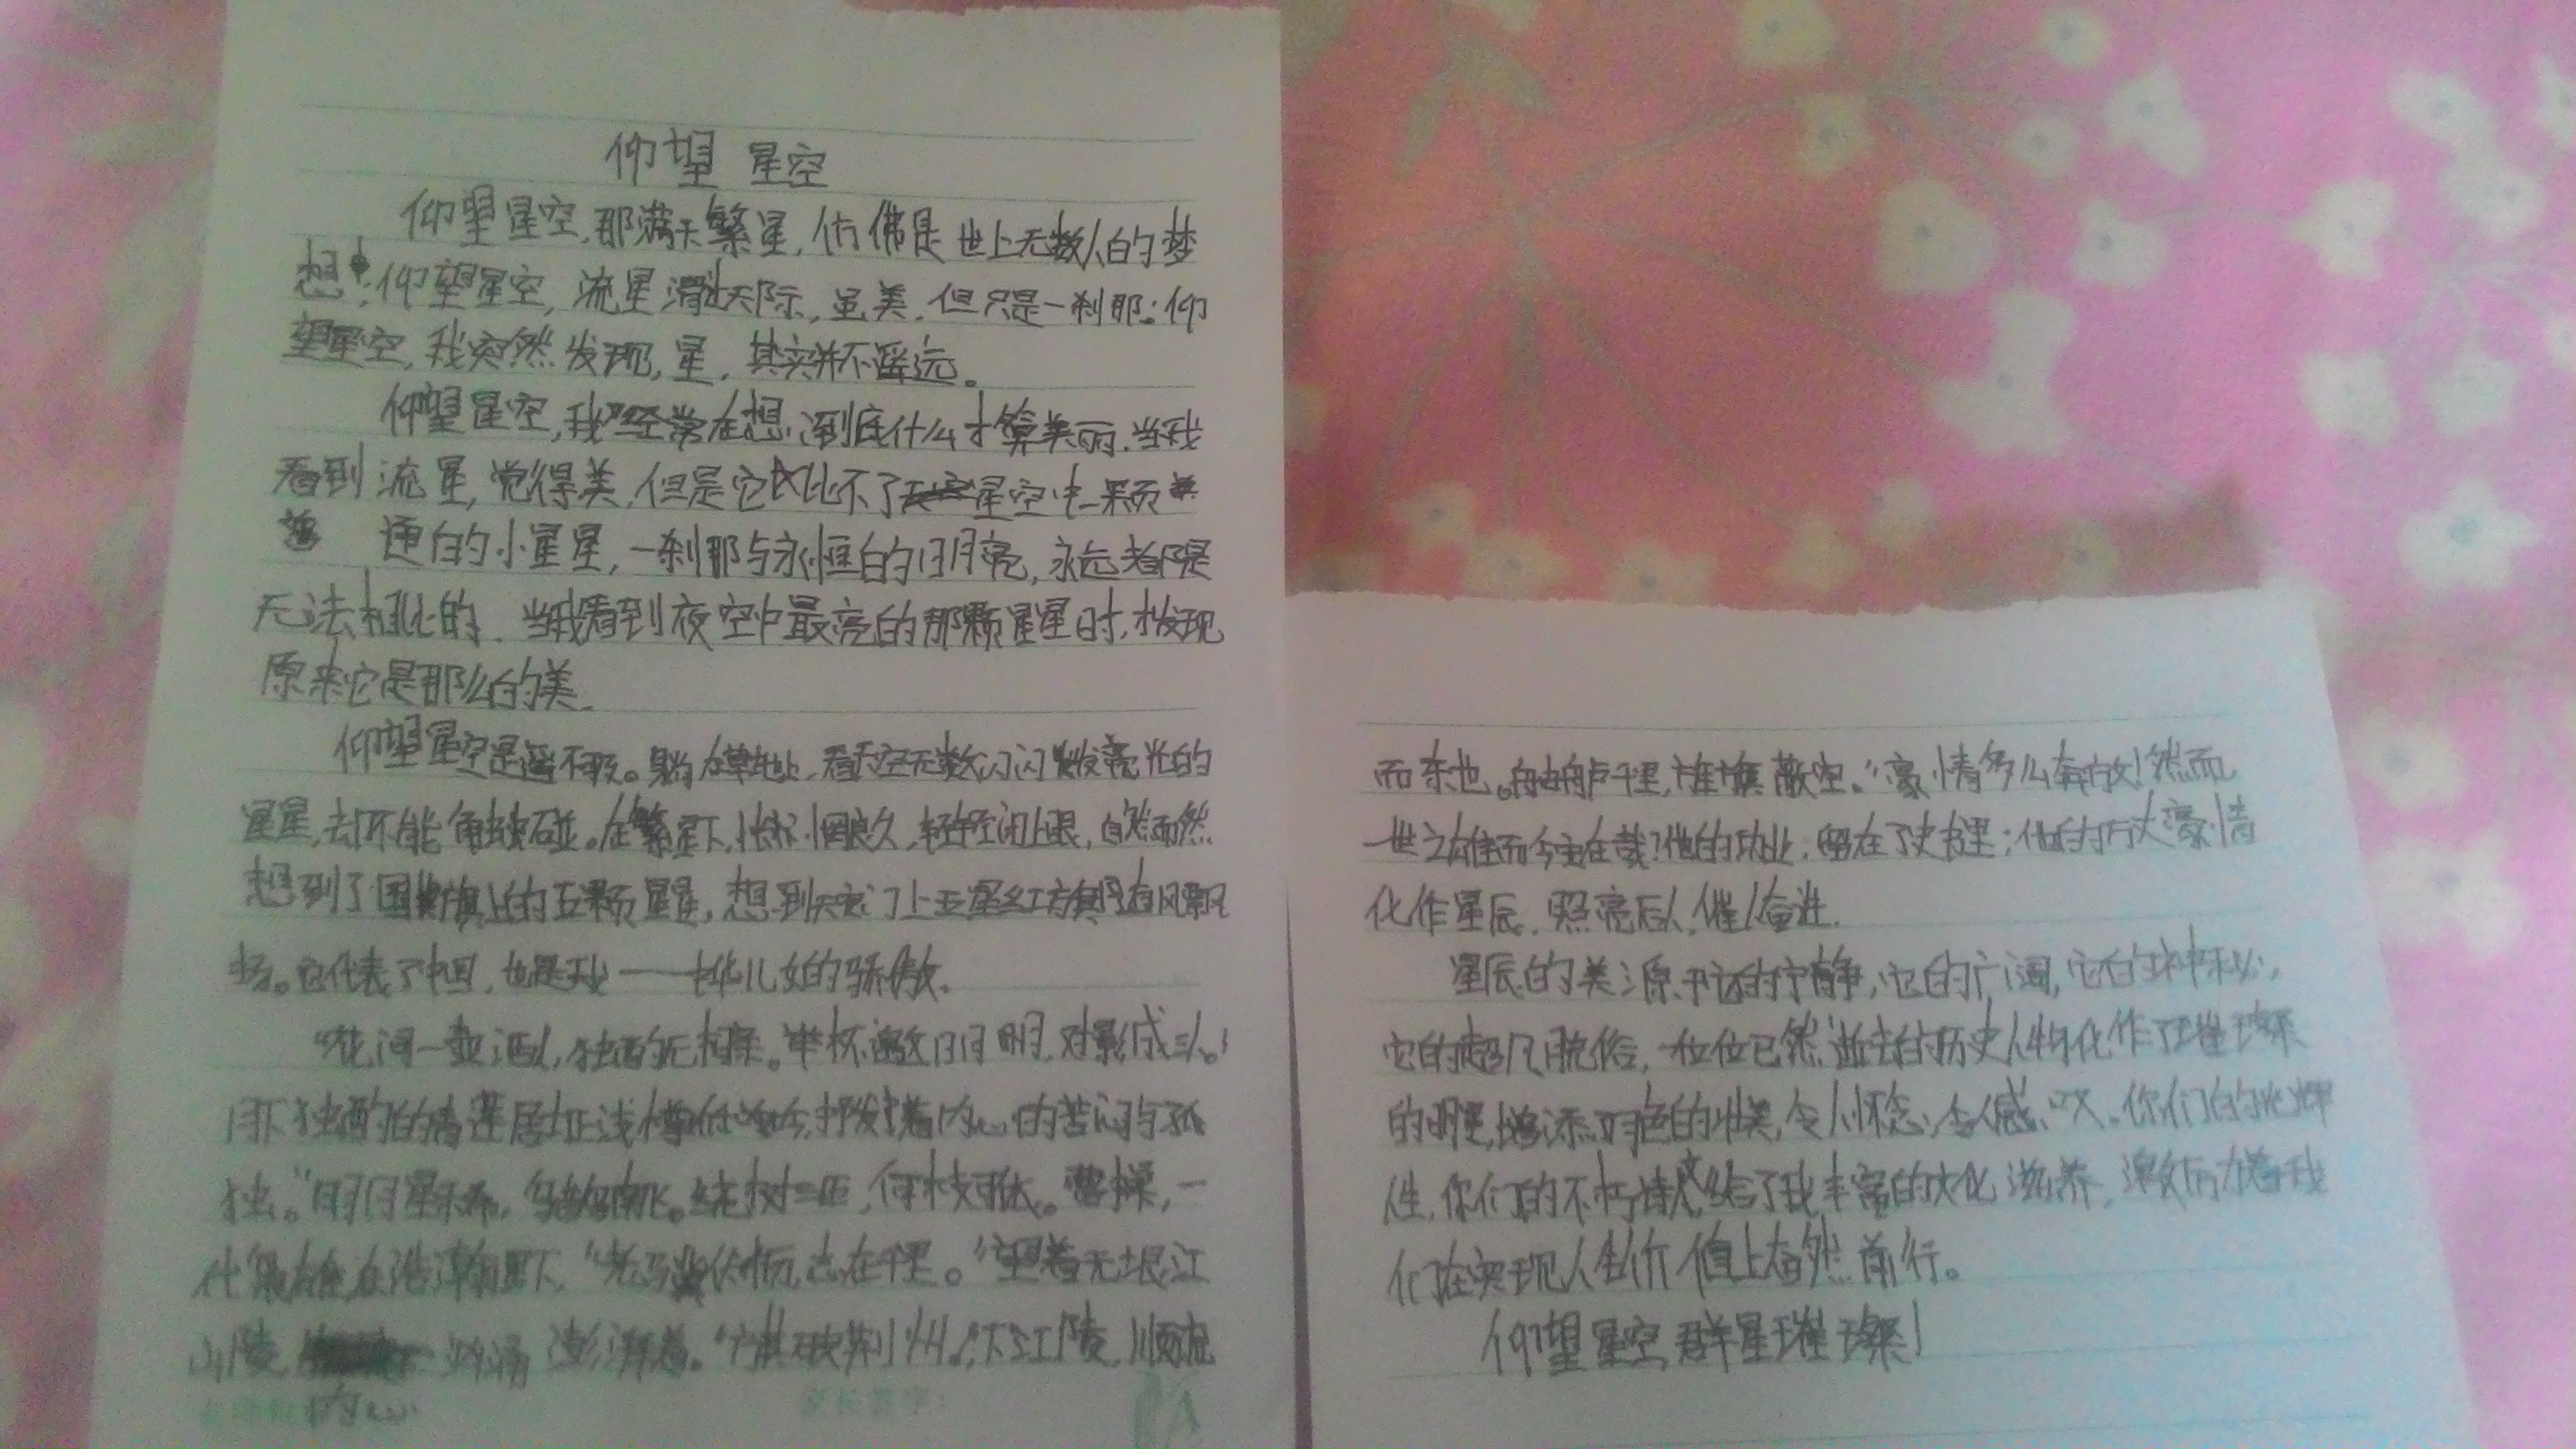 仰望 星空
仰望星空,那满天繁星,仿佛是世上无数人的梦
想;仰望星空,流星滑过天际,虽美,但只是一刹那;仰
望星空,我突然发现,星,其实并不遥远。
仰望星空,我经常在想,到底什么才算美丽.当我
看到流星,觉得美,但是它比不了星空中一颗
普通的小星星,一刹那与永恒的明亮,永远都是
无法相比的.当我看到夜空中最亮的那颗星星时,才发现
原来它是那么的美.
仰望星空是遥不及。躺在草地上,看天空无数闪闪发亮光的
星星,却不能触碰。在繁星下,惆良久,轻轻闭上眼,自然而然
想到了国旗上的五颗星星,想到天安门上五星红旗迎风飘
扬。它代表了中国,也是我——中华儿女的骄傲.
“花间一壶酒,独酌无相亲。举杯邀明月,对影成三人。”
月下独酌的青莲居士正浅樽低吟,抒发着内心的苦闷与孤
独。“明月星稀,乌鹊南飞。绕树三匝,何枝可依。曹操,一
代枭雄,在浩瀚星下,“老骥伏枥,志在千里。”望着无垠江
山陵, 汹涌澎湃着。“方其破荆州,下江陵,顺流
而东也。舳舻千里,旌旗蔽空。”豪情多么奔放!然而
一世之雄而今安在哉?他的功业,留在了史书里;他的万丈豪情
化作星辰,照亮后人,催人奋进.
星辰的美源于它的宁静,它的广阔,它的神秘,
它的超凡脱俗,一位位已然逝去的历史人物化作了璀璨
的明星,增添夜色的壮美,令人怀念,令人感叹。你们的光辉
人生,你们的不朽诗文给了我丰富的文化滋养,激励着我
们在实现人生价值上奋然前行。
仰望星空,群星璀璨!